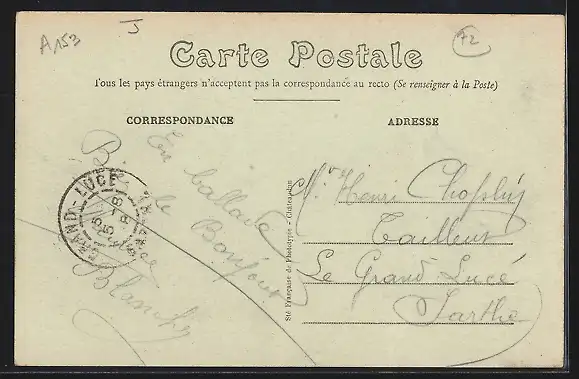 A 153
J
72
Carte Postale
Tous les pays étrangers n'acceptent pas la correspondance au recto (Se renseigner à la Poste)
CORRESPONDANCE
ADRESSE
En ballade
Bonjour
Blanche
GRAND-LUCÉ
Sté Française de Phototypie - Châteaudun
Mr Henri
Tailleur
Le Grand Lucé
Sarthe